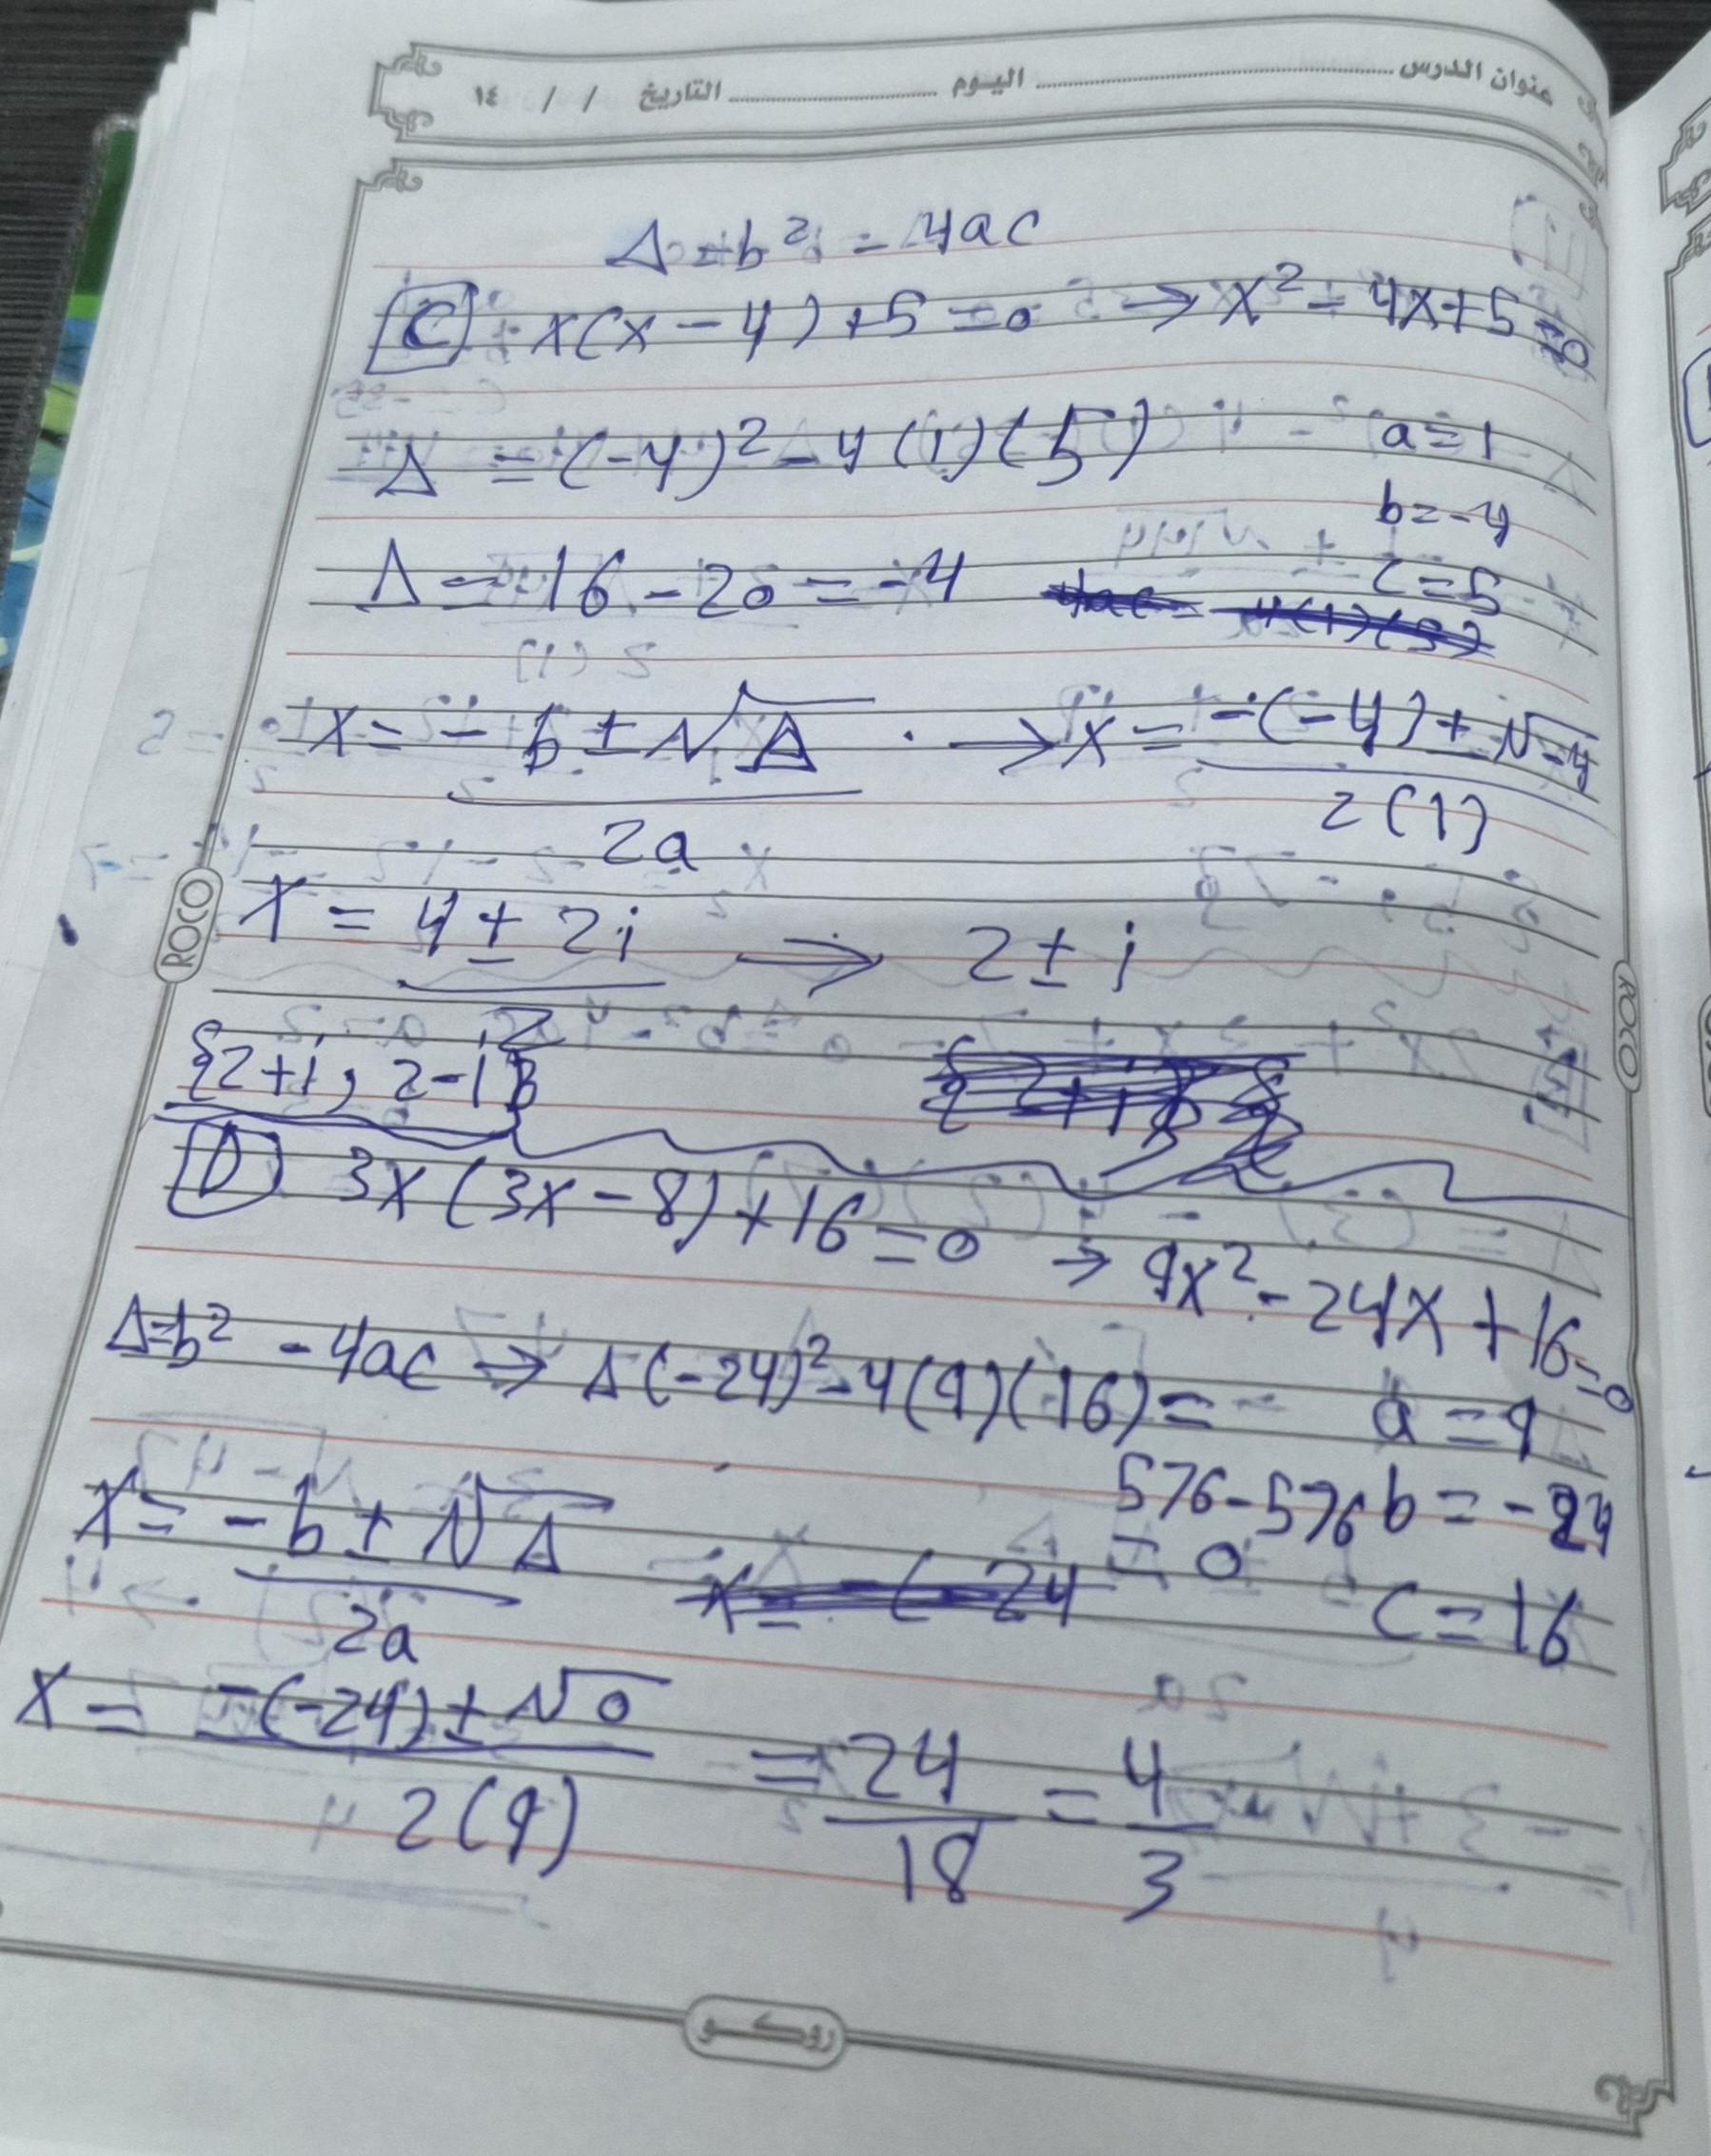 عنوان الدرس اليوم التاريخ / / ١٤
Δ = b² - 4ac
C x(x - 4) + 5 = 0 → x² - 4x + 5 = 0
Δ = (-4)² - 4(1)(5) a = 1
b = -4
Δ = 16 - 20 = -4 c = 5
x = -b ± √Δ / 2a → x = -(-4) ± √-4 / 2(1)
x = 4 ± 2i / 2 → 2 ± i
{2+i, 2-i}
D 3x(3x - 8) + 16 = 0 → 9x² - 24x + 16 = 0
Δ = b² - 4ac → Δ(-24)² - 4(9)(16) = a = 9
576 - 576 b = -24
= 0
x = -b ± √Δ / 2a c = 16
x = -(-24) ± √0 / 2(9) = 24/18 = 4/3
ROCO
ROCO
روكو